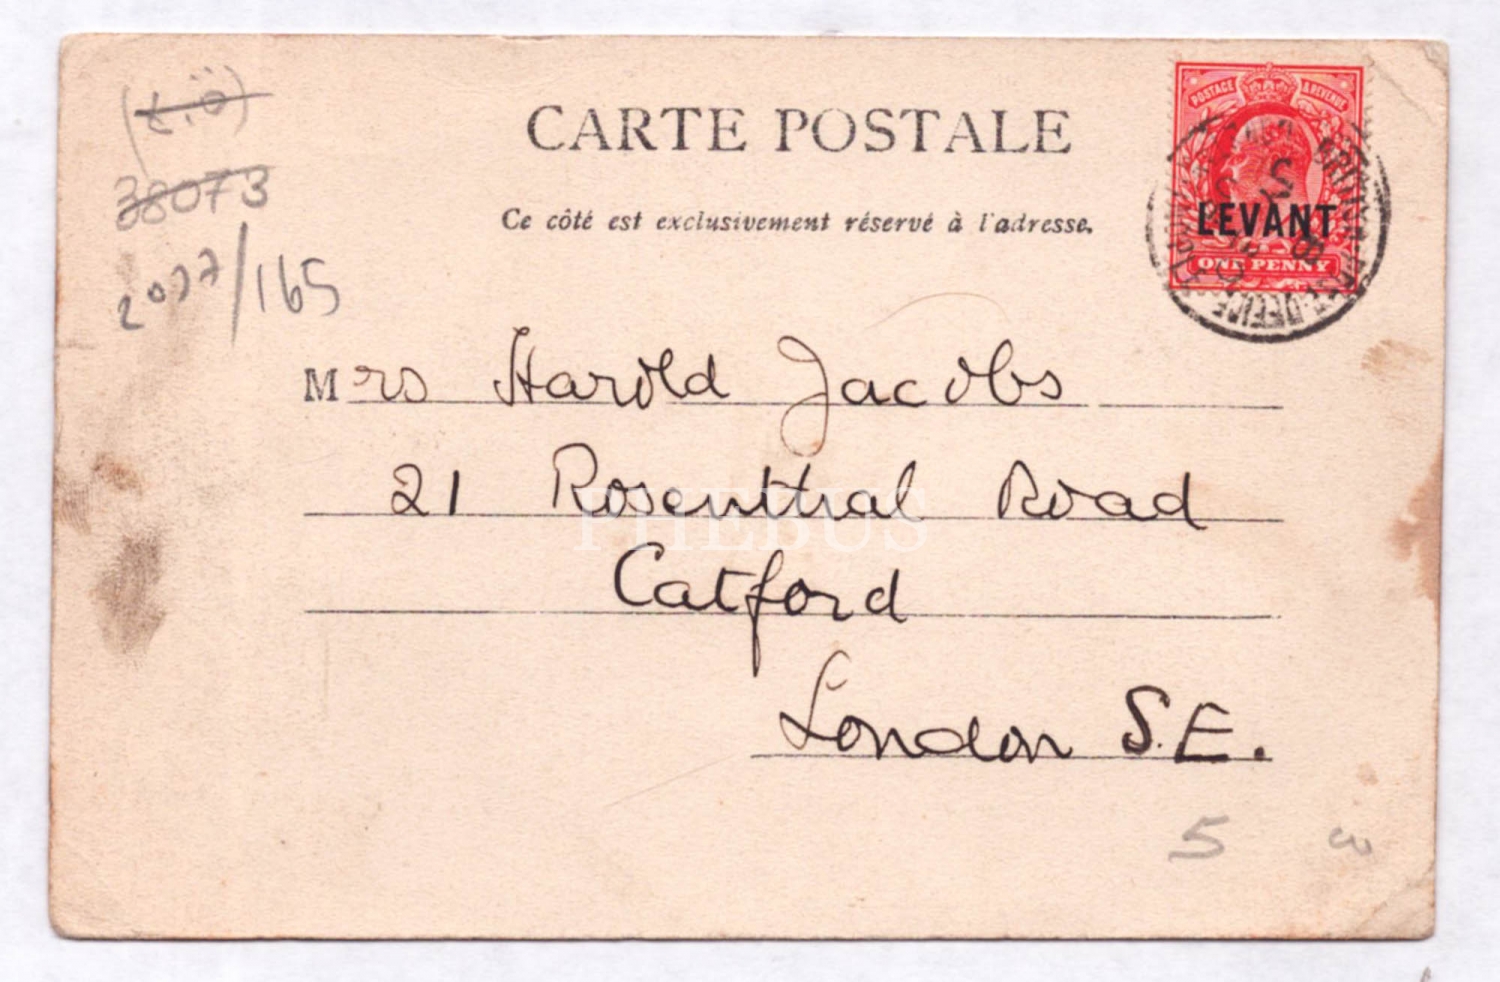 38073
2077/165
CARTE POSTALE
Ce côté est exclusivement réservé à l'adresse.
POSTAGE & REVENUE
LEVANT
ONE PENNY
BRITISH POST OFFICE
Mrs Harold Jacobs
21 Rosenthal Road
Catford
London S.E.
PHEBUS
5